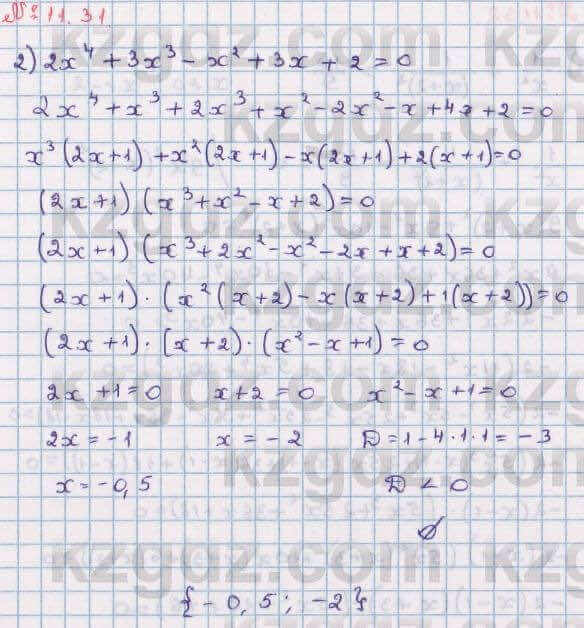 № 11.31.
2) 2x⁴ + 3x³ - x² + 3x + 2 = 0
2x⁴ + x³ + 2x³ + x² - 2x² - x + 4x + 2 = 0
x³(2x+1) + x²(2x+1) - x(2x+1) + 2(x+1) = 0
(2x+1)(x³ + x² - x + 2) = 0
(2x+1)(x³ + 2x² - x² - 2x + x + 2) = 0
(2x+1)·(x²(x+2) - x(x+2) + 1(x+2)) = 0
(2x+1)·(x+2)·(x² - x + 1) = 0
2x + 1 = 0 x + 2 = 0 x² - x + 1 = 0
2x = -1 x = -2 D = 1 - 4·1·1 = -3
x = -0,5 D < 0
∅
{-0,5; -2}
kzgdz.com